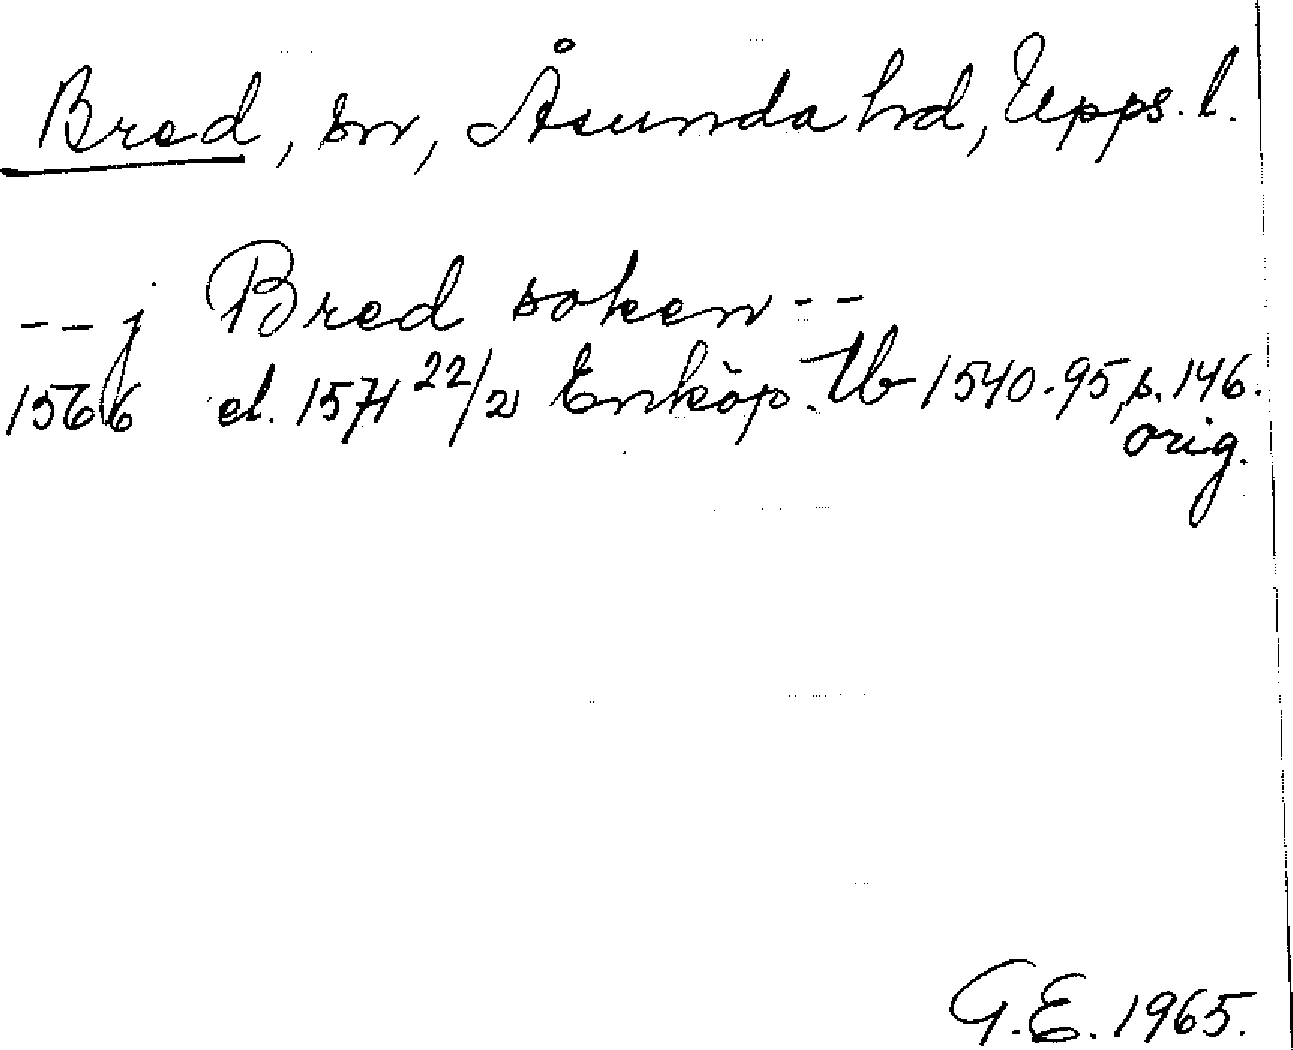 Bred, sn, Åsunda hd, Upps. l.
-- j Bred soken --
1566 el. 1571 22/2 Enköp. Tb 1540-95, s. 146.
orig.
G.E. 1965.